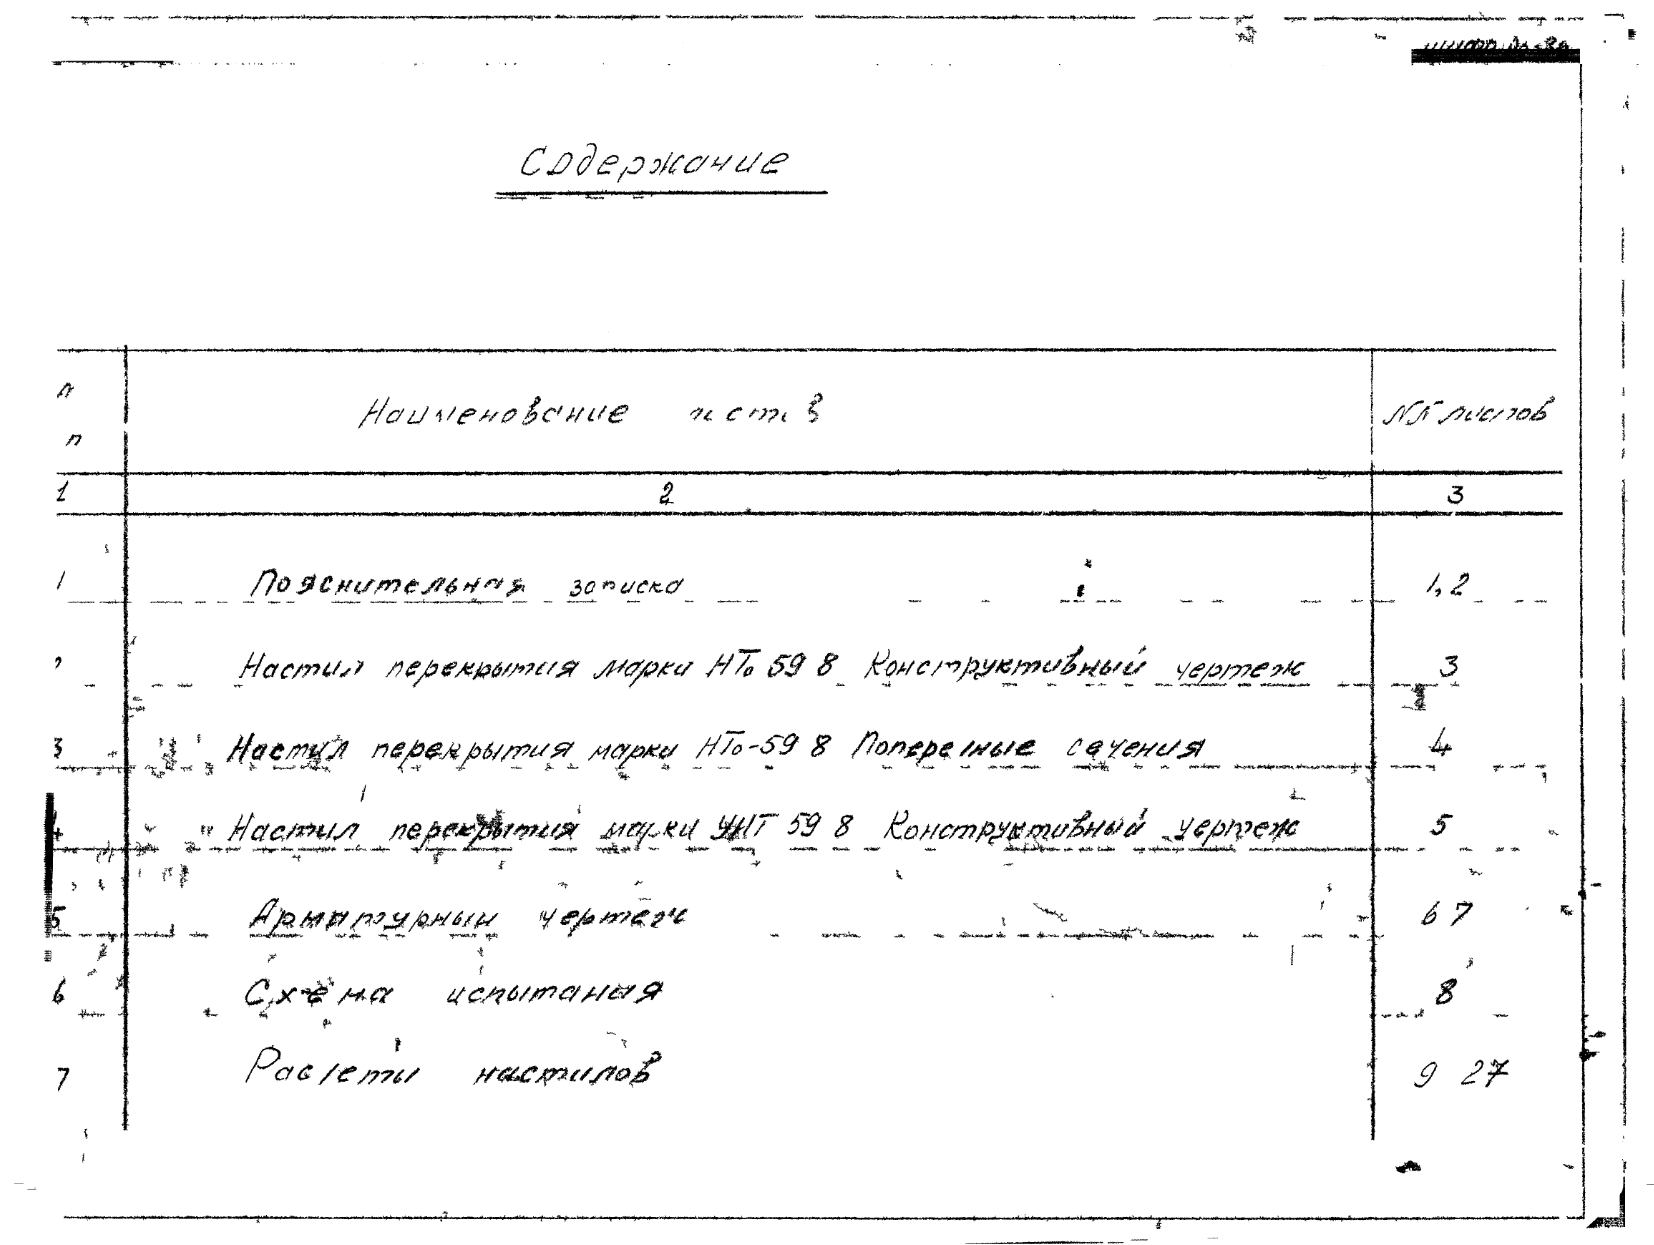 Содержание
п Наименование NN листов
п
1 2 3
1 Пояснительная записка 1,2
Настил перекрытия марки НТо 59 8 Конструктивный чертеж 3
3 Настил перекрытия марки НТо-59 8 Поперечные сечения 4
4 Настил перекрытия марки УНТ 59 8 Конструктивный чертеж 5
5 Арматурный чертеж 6 7
6 Схема испытания 8
7 Расчеты настилов 9 27